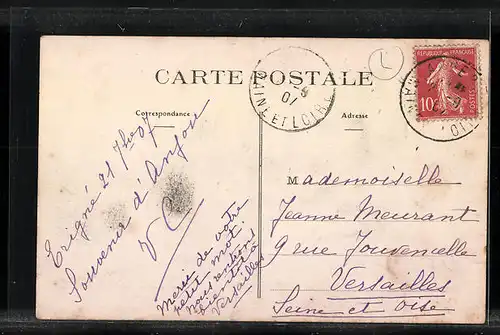 CARTE POSTALE
Correspondance
Adresse
RÉPUBLIQUE FRANÇAISE
10c
POSTES
MAINE ET LOIRE
L
Erigné 21 7bre 07
Souvenir d'Anjou
V C
Merci de votre
petit mot.
nous rentrons
bientôt à
Versailles
Mademoiselle
Jeanne Meurant
9 rue Jouvencelle
Versailles
Seine et Oise